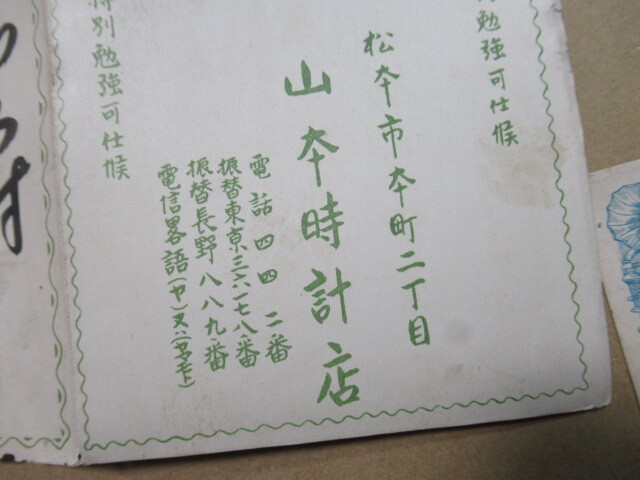 勉強可仕候
松本市本町二丁目
山本時計店
電話四四二番
振替東京三六一七八番
振替長野八八九番
電信畧語(ヤ)又ハ(ヤマモト)
特別勉強可仕候